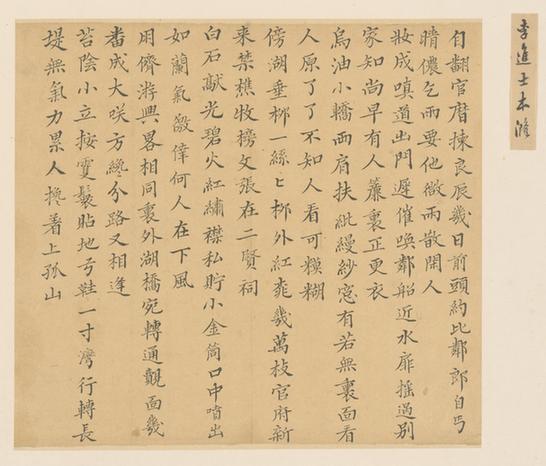 李進士本
自翻官曆揀良辰幾日前頭約比鄰郎自丐
晴儂乞雨要他微雨散閒人
妝成嗔道出門遲催喚鄰船近水扉搖過別
家知尚早有人簾裏正更衣
烏油小轎兩肩扶紕縵紗窓有若無裏面看
人原了了不知人看可糢糊
傍湖垂栁一絲々栁外紅桃幾萬枝官府新
来禁樵牧榜文張在二賢祠
白石敲光碧火紅繡襟私貯小金筒口中噴出
如蘭氣儌倖何人在下風
朋儕游興畧相同裏外湖橋宛轉通覿面幾
番成大咲方纔分路又相逢
苔陰小立按雙鬟貼地弓鞋一寸灣行轉長
堤無氣力累人攙着上孤山